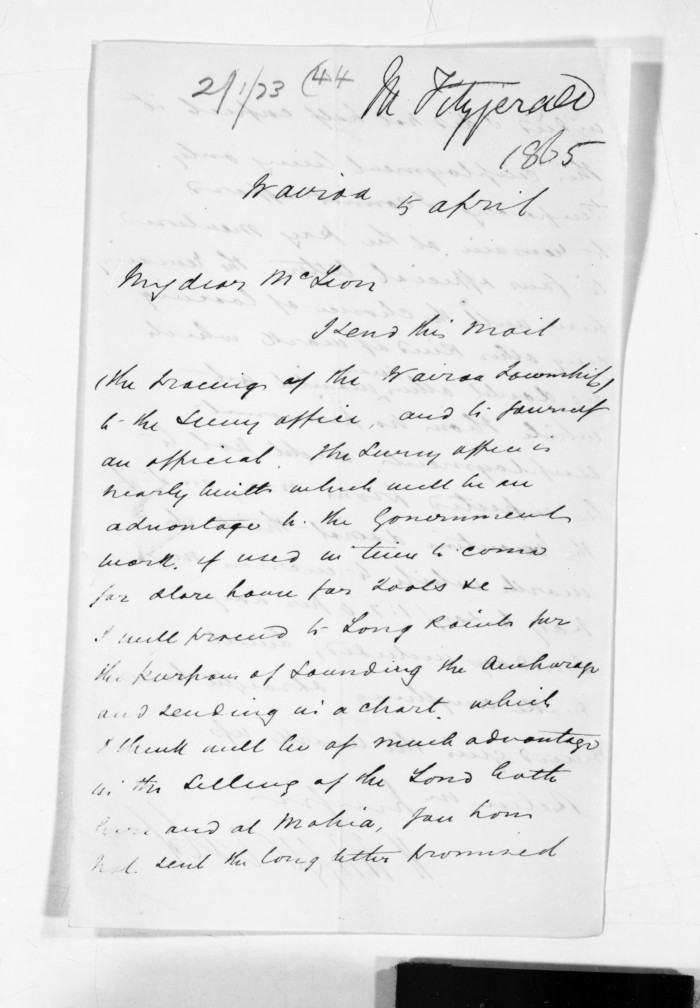 2/1/73 (44
M. Fitzgerald
1865
Wairoa 5 April
My dear McLean
I send this Mail
(the tracings of the Wairoa Township)
to the Survey office, and to yourself
an official. The Survey office is
nearly built which will be an
advantage to the Government
work. if used in time to come
for store house for Tools &c -
I will proceed to Long Point for
the purpose of Sounding the Anchorage
and sending in a chart. which
I think will be of much advantage
in the selling of the Land both
here and at Mahia, you have
not sent the long letter promised